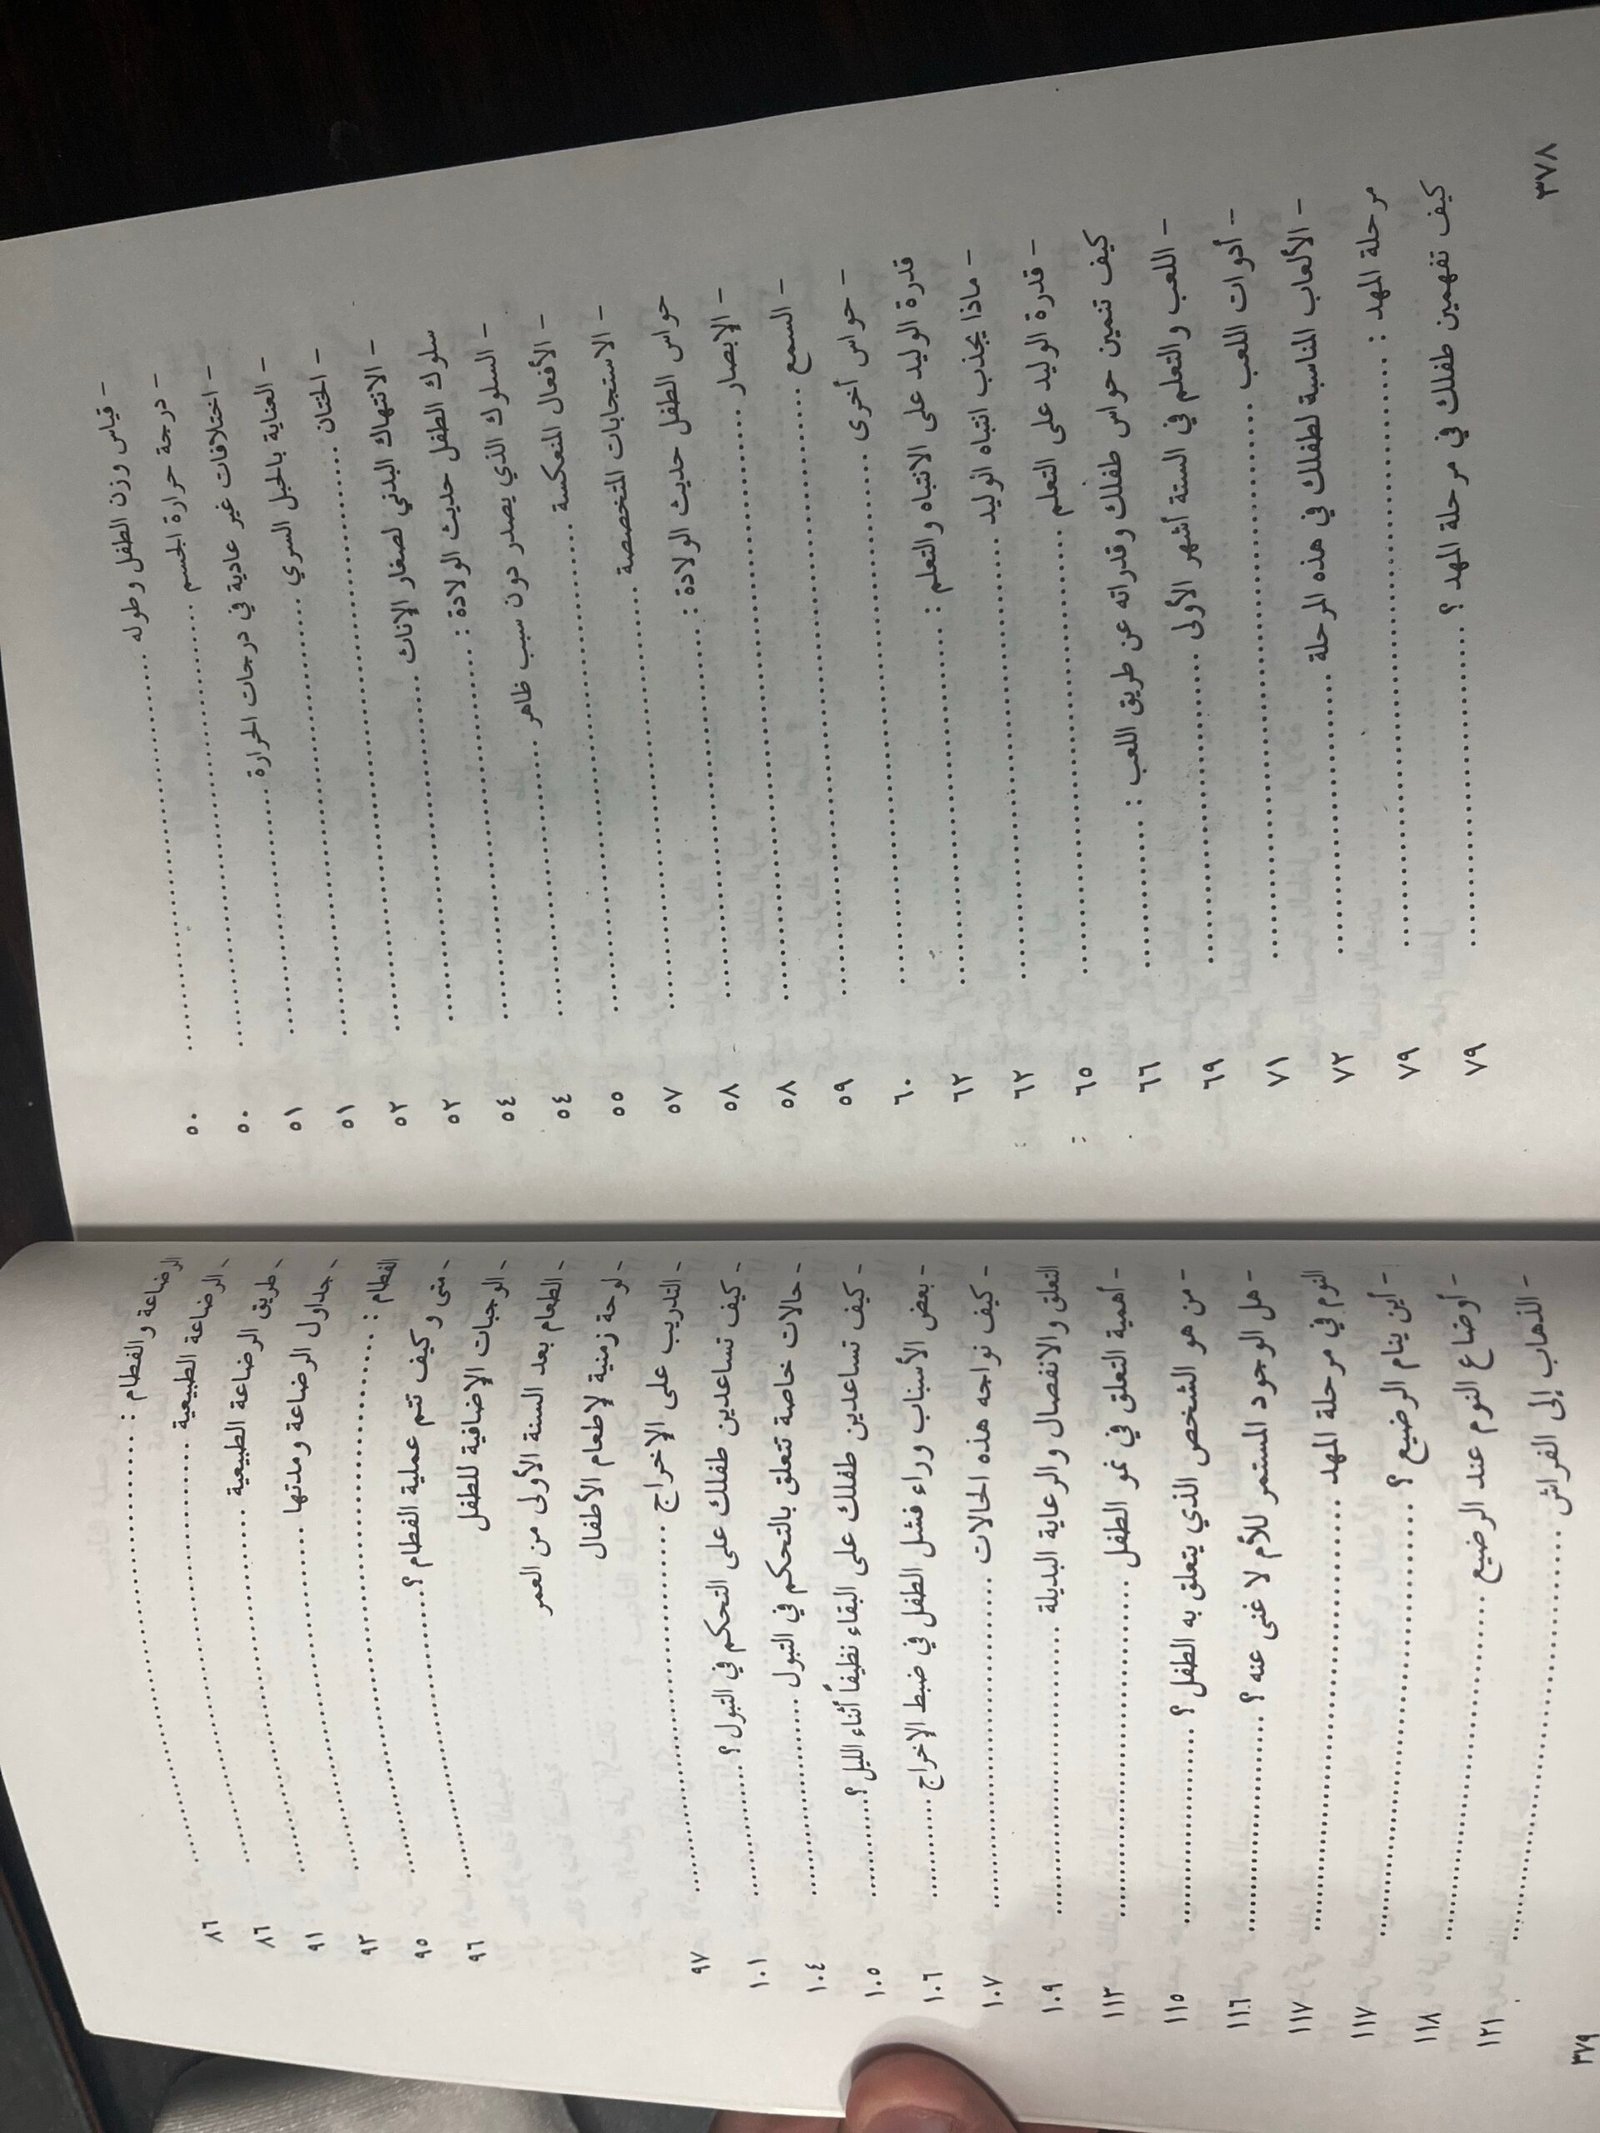 - قياس وزن الطفل وطوله ........ ٥٠
- درجة حرارة الجسم ........ ٥٠
- اختلافات غير عادية في درجات الحرارة ........ ٥١
- العناية بالحبل السري ........ ٥١
- الختان ........ ٥٢
- الانتهاك البدني لصغار الإناث ........ ٥٢
سلوك الطفل حديث الولادة : ........ ٥٤
- السلوك الذي يصدر دون سبب ظاهر ........ ٥٤
- الأفعال المنعكسة ........ ٥٥
- الاستجابات المتخصصة ........ ٥٧
حواس الطفل حديث الولادة : ........ ٥٨
- الإبصار ........ ٥٨
- السمع ........ ٥٩
- حواس أخرى ........ ٦٠
قدرة الوليد على الانتباه والتعلم : ........ ٦٢
- ماذا يجذب انتباه الوليد ........ ٦٢
- قدرة الوليد على التعلم ........ ٦٥
كيف تنمين حواس طفلك وقدراته عن طريق اللعب : ........ ٦٦
- اللعب والتعلم في الستة أشهر الأولى ........ ٦٩
- أدوات اللعب ........ ٧١
- الألعاب المناسبة لطفلك في هذه المرحلة ........ ٧٢
مرحلة المهد : ........ ٧٩
كيف تفهمين طفلك في مرحلة المهد ؟ ........ ٧٩
٣٧٨
الرضاعة والفطام : ........ ٨٦
- الرضاعة الطبيعية ........ ٨٦
- طريق الرضاعة الطبيعية ........ ٩١
- جداول الرضاعة ومدتها ........ ٩٣
الفطام : ........ ٩٥
- متى وكيف تتم عملية الفطام ؟ ........ ٩٦
- الوجبات الإضافية للطفل
- الطعام بعد السنة الأولى من العمر
- لوحة زمنية لإطعام الأطفال
- التدريب على الإخراج ........ ٩٧
- كيف تساعدين طفلك على التحكم في التبول ؟ ........ ١٠١
- حالات خاصة تتعلق بالتحكم في التبول ........ ١٠٤
- كيف تساعدين طفلك على البقاء نظيفاً أثناء الليل ؟ ........ ١٠٥
- بعض الأسباب وراء فشل الطفل في ضبط الإخراج ........ ١٠٦
- كيف نواجه هذه الحالات ........ ١٠٧
التعلق والانفصال والرعاية البديلة ........ ١٠٩
- أهمية التعلق في نمو الطفل ........ ١١٣
- من هو الشخص الذي يتعلق به الطفل ؟ ........ ١١٥
- هل الوجود المستمر للأم لا غنى عنه ؟ ........ ١١٦
النوم في مرحلة المهد ........ ١١٧
- أين ينام الرضيع ؟ ........ ١١٧
- أوضاع النوم عند الرضيع ........ ١١٨
- الذهاب إلى الفراش ........ ١٢١
٣٧٩